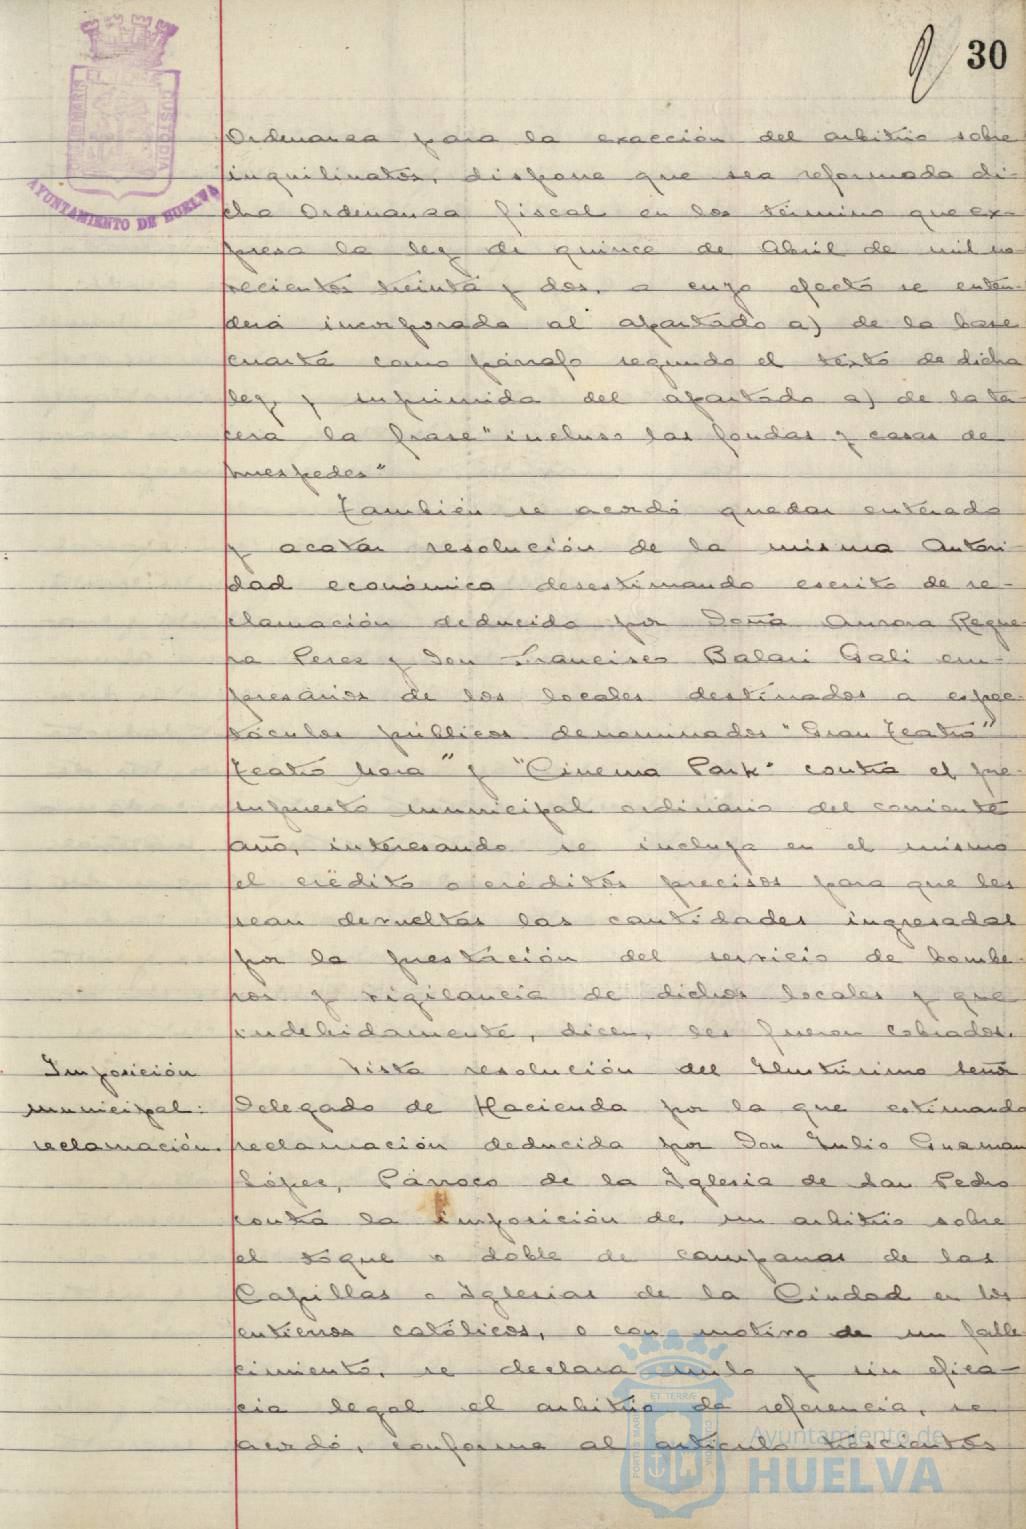 30
AYUNTAMIENTO DE HUELVA
Ordenanza para la exacción del arbitrio sobre
inquilinatos, dispone que sea reformada di-
cha Ordenanza fiscal en los término que ex-
presa la ley de quince de Abril de mil no
vecientos treinta y dos, a cuyo efecto se enten-
derá incorporada al apartado a) de la base
cuarta como párrafo segundo el texto de dicha
ley, y suprimida del apartado a) de la ta
rera la frase "incluso las fondas y casas de
huespedes"
También se acordó quedar enterado
y acatar resolución de la misma Autori
dad económica desestimando escrito de re-
clamación deducido por Doña Aurora Reque
na Perez y Don Francisco Balari Gali em-
presarios de los locales destinados a espec-
táculos públicos denominados "Gran Teatro"
Teatro Mora" y "Cinema Park" contra el pre-
supuesto municipal ordinario del corriente
año, interesando se incluya en el mismo
el crédito o créditos precisos para que les
sean devueltas las cantidades ingresadas
por la prestación del servicio de bombe-
ros y vigilancia de dichos locales y que
indebidamente, dicen, les fueron cobrados.
Imposición
municipal:
reclamación.
Vista resolución del Ilustrísimo Señor
Delegado de Hacienda por la que estimando
reclamación deducida por Don Julio Guzman
López, Párroco de la Iglesia de San Pedro
contra la imposición de un arbitrio sobre
el toque o doble de campanas de las
Capillas o Iglesias de la Ciudad en los
entierros católicos, o con motivo de un falle
cimiento, se declara nulo y sin efica-
cia legal el arbitrio de referencia, se
acordó, conforme al artículo trescientos
Ayuntamiento de
HUELVA